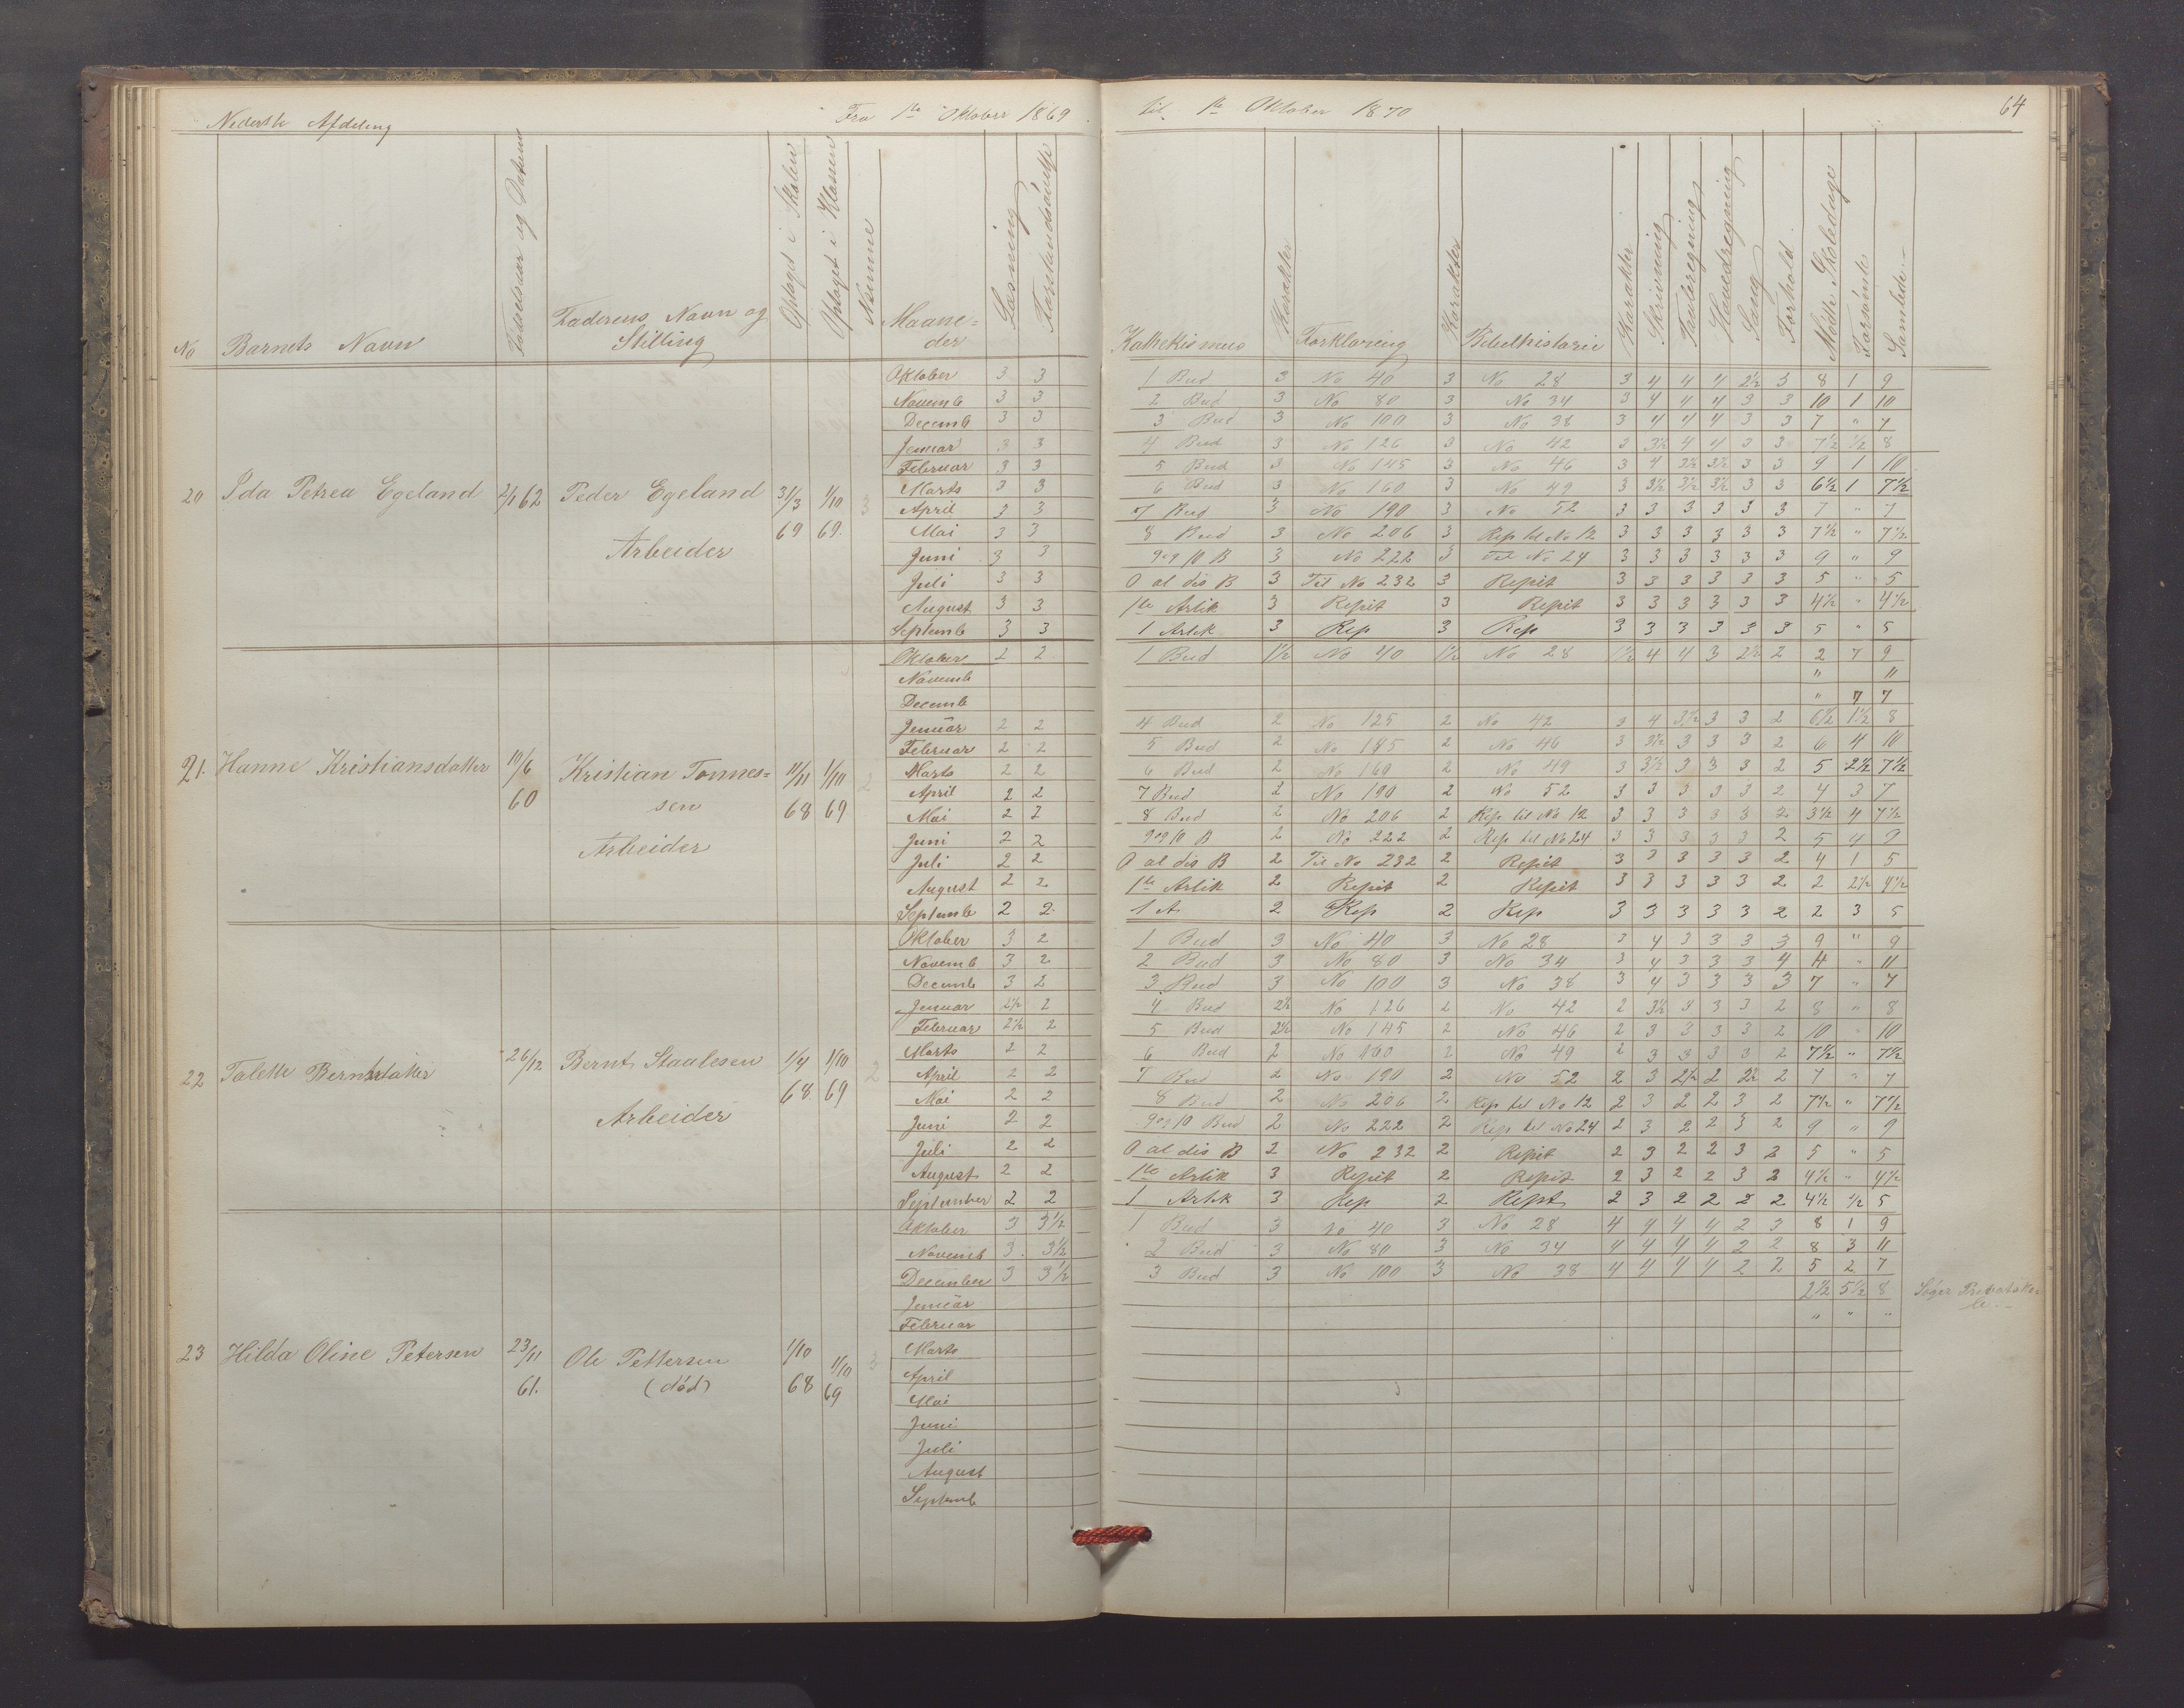 Nederste Afdeling Fra 1ste Oktober 1869 til 1ste Oktober 1870 64
No Barnets Navn Fødselsaar og Datum Faderens Navn og Stilling Optaget i Skolen Optaget i Klassen Nemme Maaneder Læsning Forstandsøvelse Kathekismus Karakter Forklaring Karakter Bibelhistorie Karakter Skrivning Tavleregning Hovedregning Sang Forhold Mødte Skoledage Forsømte Samlede
20 Ida Petrea Egeland 2/1 62 Peder Egeland Arbeider 31/3 69 1/10 69. 3
Oktober 3 3 1 Bud 3 No 40 3 No 28 3 4 4 4 2½ 3 8 1 9
Novemb 3 3 2 Bud 3 No 80 3 No 34 3 4 4 4 3 3 10 1 10
Decemb 3 3 3 Bud 3 No 100 3 No 38 3 4 4 4 3 3 7 " 7
Januar 3 3 4 Bud 3 No 126 3 No 42 3 3½ 4 4 3 3 7½ ½ 8
Februar 3 3 5 Bud 3 No 145 3 No 46 3 4 3½ 3½ 3 3 9 1 10
Marts 3 3 6 Bud 3 No 160 3 No 49 3 3½ 3½ 3½ 3 3 6½ 1 7½
April 3 3 7 Bud 3 No 190 3 No 52 3 3 3 3 3 3 7 " 7
Mai 3 3 8 Bud 3 No 206 3 Rep til No 12 3 3 3 3 3 3 7½ " 7½
Juni 3 3 9 og 10 B 3 No 222 3 til No 24 3 3 3 3 3 3 9 " 9
Juli 3 3 O al dis B 3 Til No 232 3 Repit 3 3 3 3 3 3 5 " 5
August 3 3 1ste Artik 3 Repit 3 Repit 3 3 3 3 3 3 4½ " 4½
Septemb 3 3 1 Artik 3 Rep 3 Rep 3 3 3 3 3 3 5 " 5
21. Hanne Kristiansdatter 10/6 60 Kristian Tønnessen Arbeider 11/11 68 1/10 69 2
Oktober 2 2 1 Bud 1½ No 40 1½ No 28 1½ 4 4 3 2½ 2 2 7 9
Novemb " 11
Decemb " 7 7
Januar 2 2 4 Bud 2 No 125 2 No 42 3 4 3½ 3 3 2 6½ 1½ 8
Februar 2 2 5 Bud 2 No 145 2 No 46 3 3½ 3 3 3 2 6 4 10
Marts 2 2 6 Bud 2 No 160 2 No 49 3 3½ 3 3 3 2 5 2½ 7½
April 2 2 7 Bud 2 No 190 2 No 52 3 3 3 3 3 2 4 3 7
Mai 2 2 8 Bud 2 No 206 2 Rep til No 12 3 3 3 3 3 2 3½ 4 7½
Juni 2 2 9 og 10 B 2 No 222 2 Rep til No 24 3 3 3 3 3 2 5 4 9
Juli 2 2 O al dis B 2 Til No 232 2 Repit 3 3 3 3 3 2 4 1 5
August 2 2 1ste Artik 2 Repit 2 Repit 3 3 3 3 3 2 2 2½ 4½
Septemb 2 2 1 A 2 Rep 2 Rep 3 3 3 3 3 2 2 3 5
22 Talette Berntsdatter 26/12 Bernt Staalesen Arbeider 1/4 68. 1/10 69 2
Oktober 3 2 1 Bud 3 No 40 3 No 28 3 4 3 3 3 3 9 " 9
Novemb 3 2 2 Bud 3 No 80 3 No 34 3 4 3 3 3 4 11 " 11
Decemb 3 2 3 Bud 3 No 100 3 No 38 3 4 3 3 3 3 7 " 7
Januar 2½ 2 4 Bud 2½ No 126 2 No 42 2 3½ 3 3 3 2 8 " 8
Februar 2½ 2 5 Bud 2½ No 145 2 No 46 2 3 3 3 3 2 10 " 10
Marts 2 2 6 Bud 2 No 160 2 No 49 2 3 3 3 3 2 7½ " 7½
April 2 2 7 Bud 2 No 190 2 No 52 2 3 2½ 2 2½ 2 7 " 7
Mai 2 2 8 Bud 2 No 206 2 Rep til No 12 2 3 2 2 3 2 7½ " 7½
Juni 2 2 9 og 10 Bud 2 No 222 2 Rep til No 24 2 3 2 2 3 2 9 " 9
Juli 2 2 O al dis B 2 No 232 2 Repit 2 3 2 2 3 2 5 " 5
August 2 2 1ste Artik 3 Repit 2 Repit 2 3 2 2 3 2 4½ " 4½
September 2 2 1 Artik 3 Rep 2 Rept 2 3 2 2 2 2 4½ ½ 5
23 Hilda Oline Petersen 23/11 61. Ole Pettersen (død) 1/10 68 1/10 69 3
Oktober 3 3½ 1 Bud 3 No 40 3 No 28 4 4 4 4 2 3 8 1 9
Novemb 3 3½ 2 Bud 3 No 80 3 No 34 4 4 4 4 2 2 8 3 11
December 3 3½ 3 Bud 3 No 100 3 No 38 4 4 4 4 2 2 5 2 7
Januar 2½ 5½ 8 Søger Privatskole.
Februar " " "
Marts
April
Mai
Juni
Juli
August
Septemb